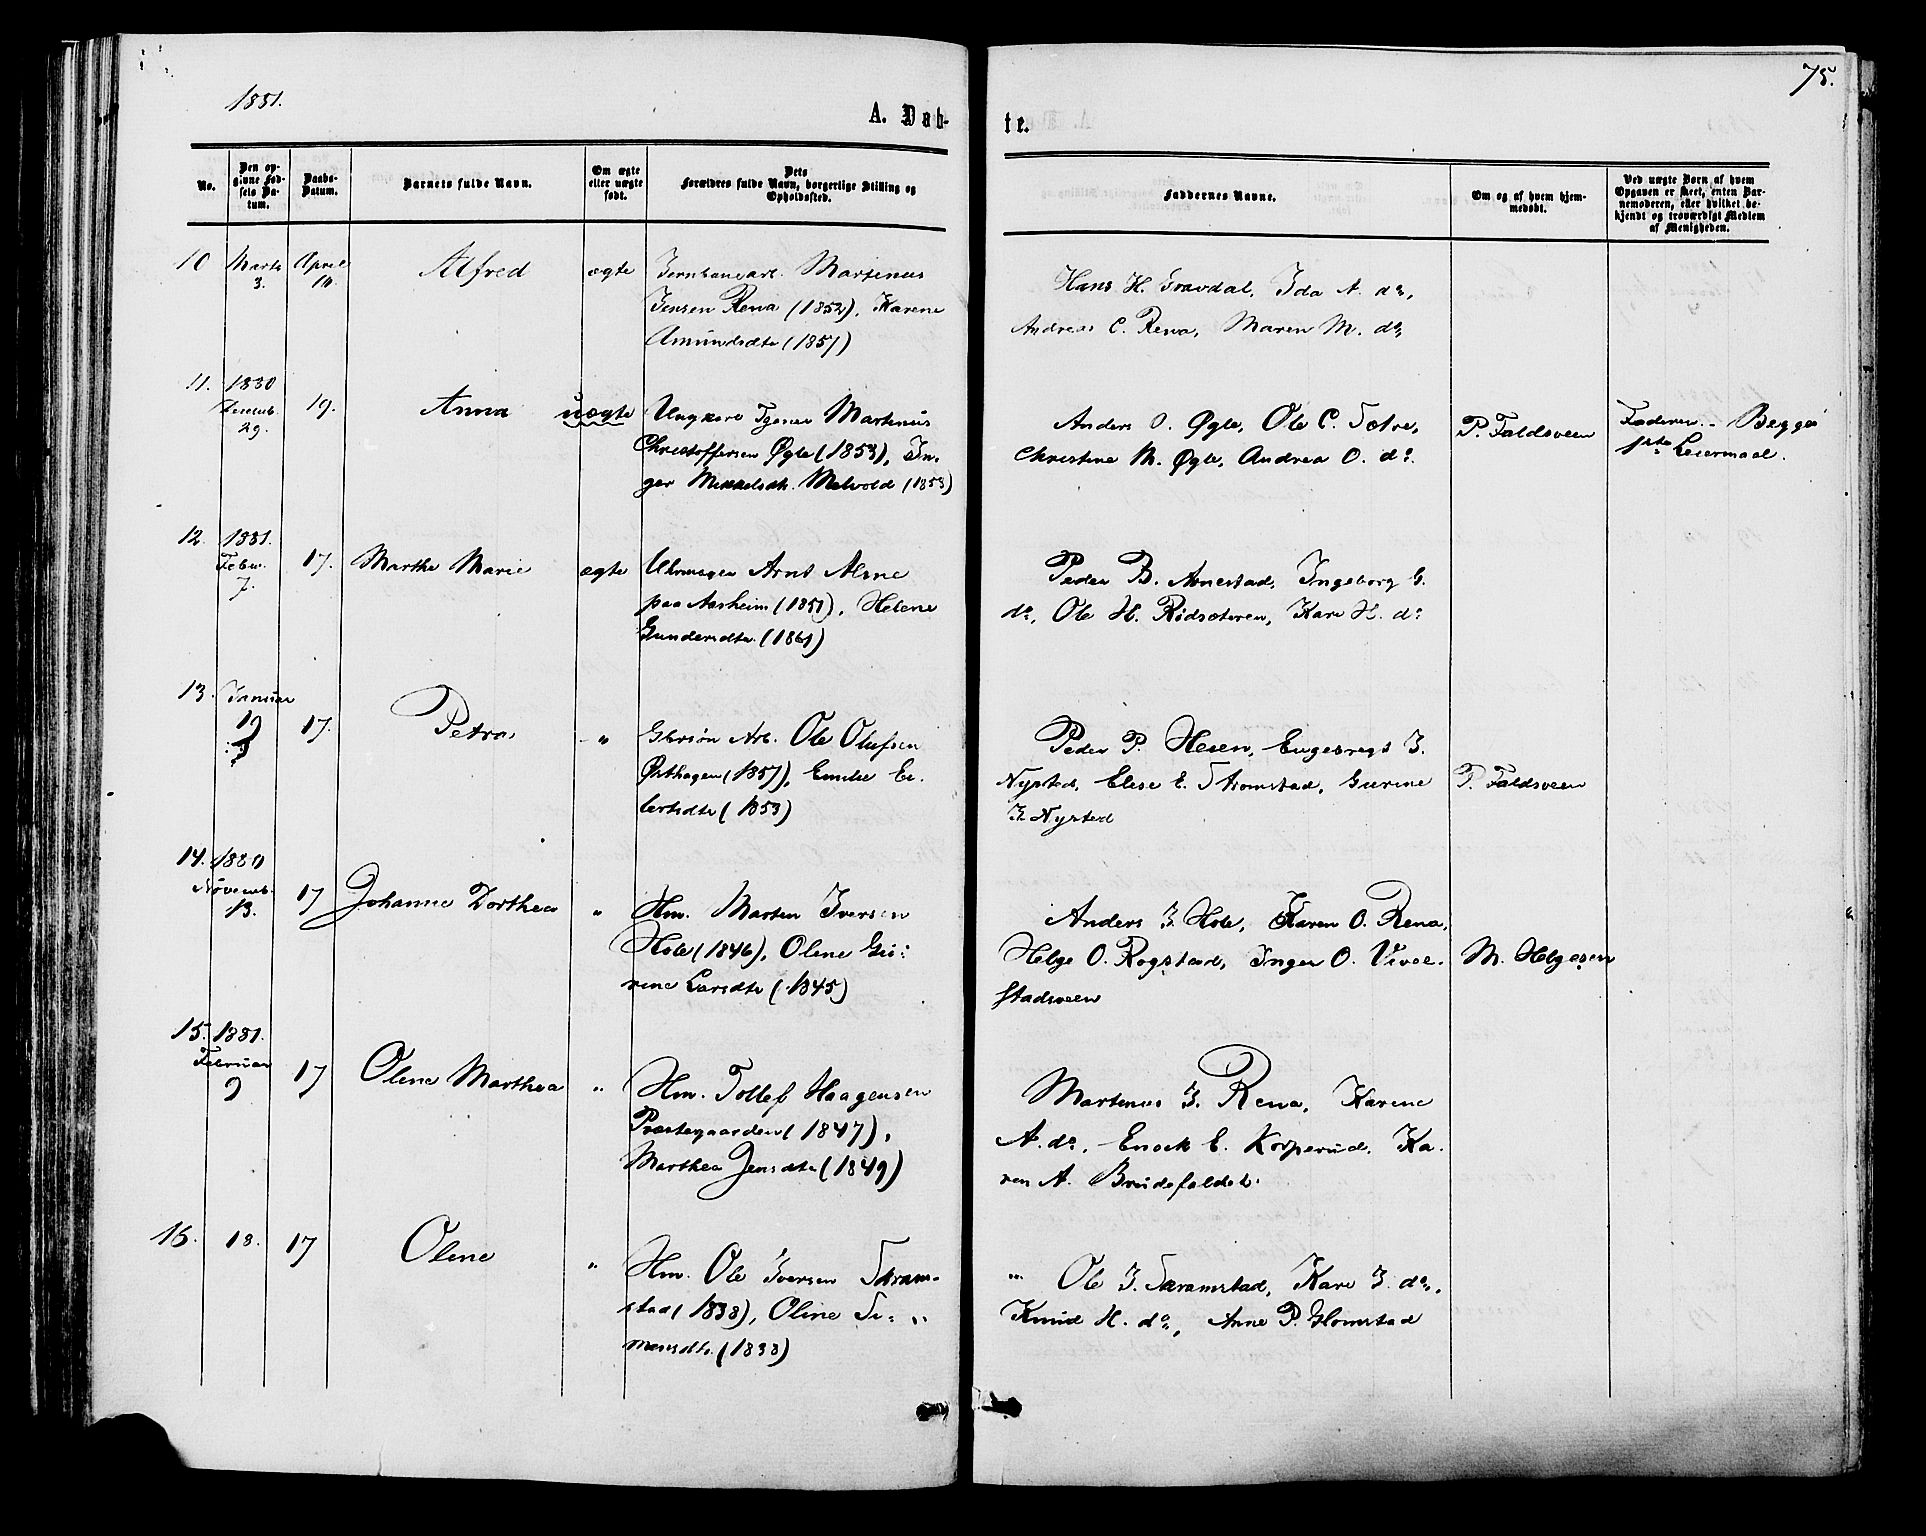 1881.
75.
A. Døb-
te.
No.
Den op-
givne Fød-
sels Da-
tum.
Daabs-
Datum.
Barnets fulde Navn.
Om ægte
eller uægte
født.
Dets
Forældres fulde Navn, borgerlige Stilling og
Opholdssted.
Faddernes Navne.
Om og af hvem hjem-
medøbt.
Ved uægte Børn af hvem
Opgaven er skeet, enten Bar-
nemoderen, eller hvilket be-
kjendt og troværdigt Medlem
af Menigheden.
10 Marts 3. April 10. Alfred ægte Jernbanearb. Martinus
Jensen Rena (1852), Karene
Amundsdtr (1857)
Hans H. Travdal, Ida A. do,
Andreas C. Rena, Maren M. do,
11. 1880 Decemb. 29. 19. Anna uægte Ungkarl Tjener Martinus
Christoffersen Øgle (1853), In-
ger Mikkelsdtr. Melvold (1853)
Anders O. Øgle, Ole C. Sætre,
Christine M. Øgle, Andrea O. do.
P. Faldsveen
Faderen. - Begges
1ste Leiermaal.
12. 1881. Febru. 7. 17. Marthe Marie ægte Uhrmager Arnt Alme
paa Aasheim (1851), Helene
Gundersdtr. (1861)
Peder B. Arnestad, Ingeborg G.
do, Ole H. Rødsæteren, Kari H. do
13. Januar 19 17. Petra, " Ole Olufsen
Østhagen (1857), Emilie El-
lertsdtr (1853)
Peder P. Hesen, Engebregt J.
Nysted, Elise E. Stromstad, Gurine
J. Nysted
P. Faldsveen
14. 1880 Novemb. 13. 17 Johanne Dorthea " Hm. Martin Iversen
Hole (1846), Oline Gu-
rine Larsdtr (1845)
Anders J. Hole, Karen O. Rena,
Helge O. Rogstad, Inger O. Vivel-
stadsveen
M. Helgesen
15. 1881. Februar 9 17 Oline Marthea " Hm. Tollef Haagensen
Præstegaarden (1847),
Marthea Jensdtr (1849)
Martinus J. Rena, Karine
A. do, Enock E. Korperud, Ka-
ren A. Brudefaldet.
16. 18. 17 Oline " Hm. Ole Iversen Skram-
stad (1838), Oline Si-
mensdtr. (1838)
" Ole J. Skramstad, Kari J. do,
Knud H. do, Anne P. Glomstad